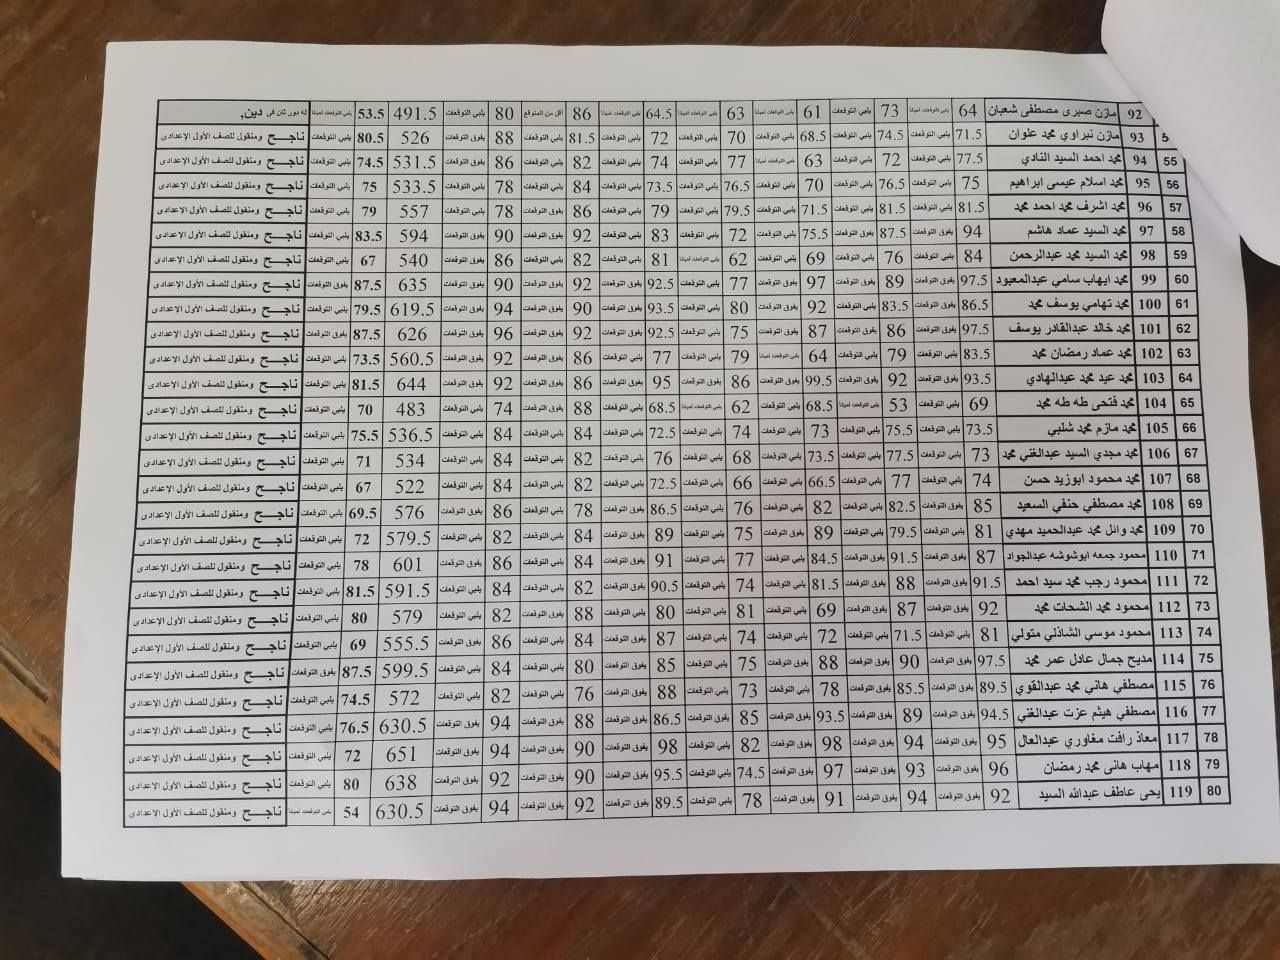 92 مازن صبرى مصطفى شعبان 64 يلبي التوقعات احيانا 73 يلبي التوقعات 61 يلبي التوقعات احيانا 63 يلبي التوقعات احيانا 64.5 يلبي التوقعات احيانا 86 أقل من المتوقع 80 يلبي التوقعات 491.5 53.5 يلبي التوقعات احيانا له دور ثان فى دين,
93 مازن نبراوي محمد علوان 71.5 يلبي التوقعات 74.5 يلبي التوقعات 68.5 يلبي التوقعات احيانا 70 يلبي التوقعات 72 يلبي التوقعات 81.5 يلبي التوقعات 88 يفوق التوقعات 526 80.5 يلبي التوقعات ناجـــح ومنقول للصف الأول الإعدادى
55 94 محمد احمد السيد النادي 77.5 يلبي التوقعات 72 يلبي التوقعات 63 يلبي التوقعات احيانا 77 يلبي التوقعات 74 يلبي التوقعات 82 يلبي التوقعات 86 يفوق التوقعات 531.5 74.5 يلبي التوقعات ناجـــح ومنقول للصف الأول الإعدادى
56 95 محمد اسلام عيسى ابراهيم 75 يلبي التوقعات 76.5 يلبي التوقعات 70 يلبي التوقعات 76.5 يلبي التوقعات 73.5 يلبي التوقعات 84 يلبي التوقعات 78 يلبي التوقعات 533.5 75 يلبي التوقعات ناجـــح ومنقول للصف الأول الإعدادى
57 96 محمد اشرف محمد احمد محمد 81.5 يلبي التوقعات 81.5 يلبي التوقعات 71.5 يلبي التوقعات 79.5 يلبي التوقعات 79 يلبي التوقعات 86 يفوق التوقعات 78 يلبي التوقعات 557 79 يلبي التوقعات ناجـــح ومنقول للصف الأول الإعدادى
58 97 محمد السيد عماد هاشم 94 يفوق التوقعات 87.5 يفوق التوقعات 75.5 يلبي التوقعات 72 يلبي التوقعات 83 يلبي التوقعات 92 يفوق التوقعات 90 يفوق التوقعات 594 83.5 يلبي التوقعات ناجـــح ومنقول للصف الأول الإعدادى
59 98 محمد السيد محمد عبدالرحمن 84 يلبي التوقعات 76 يلبي التوقعات 69 يلبي التوقعات 62 يلبي التوقعات احيانا 81 يلبي التوقعات 82 يلبي التوقعات 86 يفوق التوقعات 540 67 يلبي التوقعات ناجـــح ومنقول للصف الأول الإعدادى
60 99 محمد ايهاب سامي عبدالمعبود 97.5 يفوق التوقعات 89 يفوق التوقعات 97 يفوق التوقعات 77 يلبي التوقعات 92.5 يفوق التوقعات 92 يفوق التوقعات 90 يفوق التوقعات 635 87.5 يفوق التوقعات ناجـــح ومنقول للصف الأول الإعدادى
61 100 محمد تهامي يوسف محمد 86.5 يفوق التوقعات 83.5 يلبي التوقعات 92 يفوق التوقعات 80 يلبي التوقعات 93.5 يفوق التوقعات 90 يفوق التوقعات 94 يفوق التوقعات 619.5 79.5 يلبي التوقعات ناجـــح ومنقول للصف الأول الإعدادى
62 101 محمد خالد عبدالقادر يوسف 97.5 يفوق التوقعات 86 يفوق التوقعات 87 يفوق التوقعات 75 يلبي التوقعات 92.5 يفوق التوقعات 92 يفوق التوقعات 96 يفوق التوقعات 626 87.5 يفوق التوقعات ناجـــح ومنقول للصف الأول الإعدادى
63 102 محمد عماد رمضان محمد 83.5 يلبي التوقعات 79 يلبي التوقعات 64 يلبي التوقعات احيانا 79 يلبي التوقعات 77 يلبي التوقعات 86 يفوق التوقعات 92 يفوق التوقعات 560.5 73.5 يلبي التوقعات ناجـــح ومنقول للصف الأول الإعدادى
64 103 محمد عيد محمد عبدالهادي 93.5 يفوق التوقعات 92 يفوق التوقعات 99.5 يفوق التوقعات 86 يفوق التوقعات 95 يفوق التوقعات 86 يفوق التوقعات 92 يفوق التوقعات 644 81.5 يلبي التوقعات ناجـــح ومنقول للصف الأول الإعدادى
65 104 محمد فتحى طه طه محمد 69 يلبي التوقعات 53 يلبي التوقعات احيانا 68.5 يلبي التوقعات 62 يلبي التوقعات احيانا 68.5 يلبي التوقعات 88 يفوق التوقعات 74 يلبي التوقعات 483 70 يلبي التوقعات ناجـــح ومنقول للصف الأول الإعدادى
66 105 محمد مازم محمد شلبي 73.5 يلبي التوقعات 75.5 يلبي التوقعات 73 يلبي التوقعات 74 يلبي التوقعات 72.5 يلبي التوقعات 84 يلبي التوقعات 84 يلبي التوقعات 536.5 75.5 يلبي التوقعات ناجـــح ومنقول للصف الأول الإعدادى
67 106 محمد مجدي السيد عبدالغني محمد 73 يلبي التوقعات 77.5 يلبي التوقعات 73.5 يلبي التوقعات 68 يلبي التوقعات 76 يلبي التوقعات 82 يلبي التوقعات 84 يلبي التوقعات 534 71 يلبي التوقعات ناجـــح ومنقول للصف الأول الإعدادى
68 107 محمد محمود ابوزيد حسن 74 يلبي التوقعات 77 يلبي التوقعات 66.5 يلبي التوقعات 66 يلبي التوقعات 72.5 يلبي التوقعات 82 يلبي التوقعات 84 يلبي التوقعات 522 67 يلبي التوقعات ناجـــح ومنقول للصف الأول الإعدادى
69 108 محمد مصطفي حنفي السعيد 85 يفوق التوقعات 82.5 يلبي التوقعات 82 يلبي التوقعات 76 يلبي التوقعات 86.5 يفوق التوقعات 78 يلبي التوقعات 86 يفوق التوقعات 576 69.5 يلبي التوقعات ناجـــح ومنقول للصف الأول الإعدادى
70 109 محمد وائل محمد عبدالحميد مهدي 81 يلبي التوقعات 79.5 يلبي التوقعات 89 يفوق التوقعات 75 يلبي التوقعات 89 يفوق التوقعات 84 يلبي التوقعات 82 يلبي التوقعات 579.5 72 يلبي التوقعات ناجـــح ومنقول للصف الأول الإعدادى
71 110 محمود جمعه ابوشوشه عبدالجواد 87 يفوق التوقعات 91.5 يفوق التوقعات 84.5 يلبي التوقعات 77 يلبي التوقعات 91 يفوق التوقعات 84 يلبي التوقعات 86 يفوق التوقعات 601 78 يلبي التوقعات ناجـــح ومنقول للصف الأول الإعدادى
72 111 محمود رجب محمد سيد احمد 91.5 يفوق التوقعات 88 يفوق التوقعات 81.5 يلبي التوقعات 74 يلبي التوقعات 90.5 يفوق التوقعات 82 يلبي التوقعات 84 يلبي التوقعات 591.5 81.5 يلبي التوقعات ناجـــح ومنقول للصف الأول الإعدادى
73 112 محمود محمد الشحات محمد 92 يفوق التوقعات 87 يفوق التوقعات 69 يلبي التوقعات 81 يلبي التوقعات 80 يلبي التوقعات 88 يفوق التوقعات 82 يلبي التوقعات 579 80 يلبي التوقعات ناجـــح ومنقول للصف الأول الإعدادى
74 113 محمود موسي الشاذلي متولي 81 يلبي التوقعات 71.5 يلبي التوقعات 72 يلبي التوقعات 74 يلبي التوقعات 87 يفوق التوقعات 84 يلبي التوقعات 86 يفوق التوقعات 555.5 69 يلبي التوقعات ناجـــح ومنقول للصف الأول الإعدادى
75 114 مديح جمال عادل عمر محمد 97.5 يفوق التوقعات 90 يفوق التوقعات 88 يفوق التوقعات 75 يلبي التوقعات 85 يفوق التوقعات 80 يلبي التوقعات 84 يلبي التوقعات 599.5 87.5 يفوق التوقعات ناجـــح ومنقول للصف الأول الإعدادى
76 115 مصطفي هاني محمد عبدالقوي 89.5 يفوق التوقعات 85.5 يفوق التوقعات 78 يلبي التوقعات 73 يلبي التوقعات 88 يفوق التوقعات 76 يلبي التوقعات 82 يلبي التوقعات 572 74.5 يلبي التوقعات ناجـــح ومنقول للصف الأول الإعدادى
77 116 مصطفي هيثم عزت عبدالغني 94.5 يفوق التوقعات 89 يفوق التوقعات 93.5 يفوق التوقعات 85 يفوق التوقعات 86.5 يفوق التوقعات 88 يفوق التوقعات 94 يفوق التوقعات 630.5 76.5 يلبي التوقعات ناجـــح ومنقول للصف الأول الإعدادى
78 117 معاذ رافت مغاوري عبدالعال 95 يفوق التوقعات 94 يفوق التوقعات 98 يفوق التوقعات 82 يلبي التوقعات 98 يفوق التوقعات 90 يفوق التوقعات 94 يفوق التوقعات 651 72 يلبي التوقعات ناجـــح ومنقول للصف الأول الإعدادى
79 118 مهاب هانى محمد رمضان 96 يفوق التوقعات 93 يفوق التوقعات 97 يفوق التوقعات 74.5 يلبي التوقعات 95.5 يفوق التوقعات 90 يفوق التوقعات 92 يفوق التوقعات 638 80 يلبي التوقعات ناجـــح ومنقول للصف الأول الإعدادى
80 119 يحى عاطف عبدالله السيد 92 يفوق التوقعات 94 يفوق التوقعات 91 يفوق التوقعات 78 يلبي التوقعات 89.5 يفوق التوقعات 92 يفوق التوقعات 94 يفوق التوقعات 630.5 54 يلبي التوقعات احيانا ناجـــح ومنقول للصف الأول الإعدادى